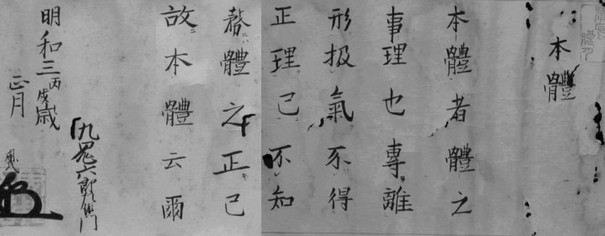 本體
本體者體之
事理也專離
形扱氣不得
正理己不知
務體之正己
故本體云爾
明和三丙戌歳
正月